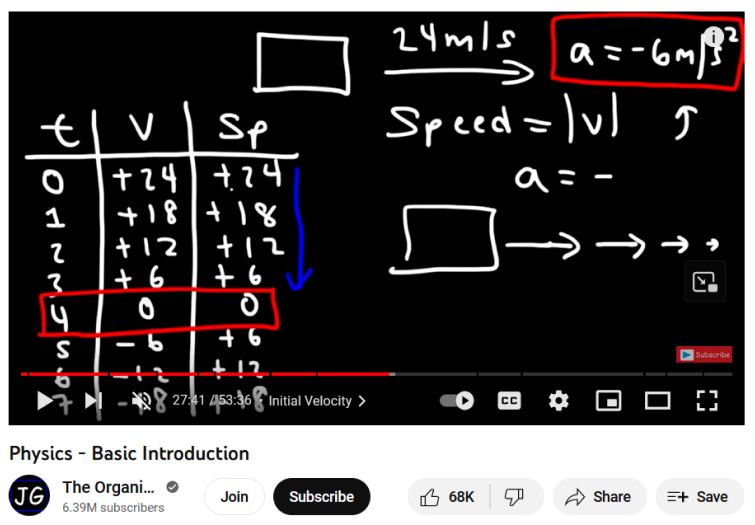 24m/s
a = -6m/s²
Speed = |v|
a = -
t V Sp
0 +24 +24
1 +18 +18
2 +12 +12
3 +6 +6
4 0 0
5 -6 +6
6 -12 +12
7 -18 +18
Subscribe
27:41 / 53:36 • Initial Velocity >
CC
Physics - Basic Introduction
JG
The Organi...
6.39M subscribers
Join
Subscribe
68K
Share
Save